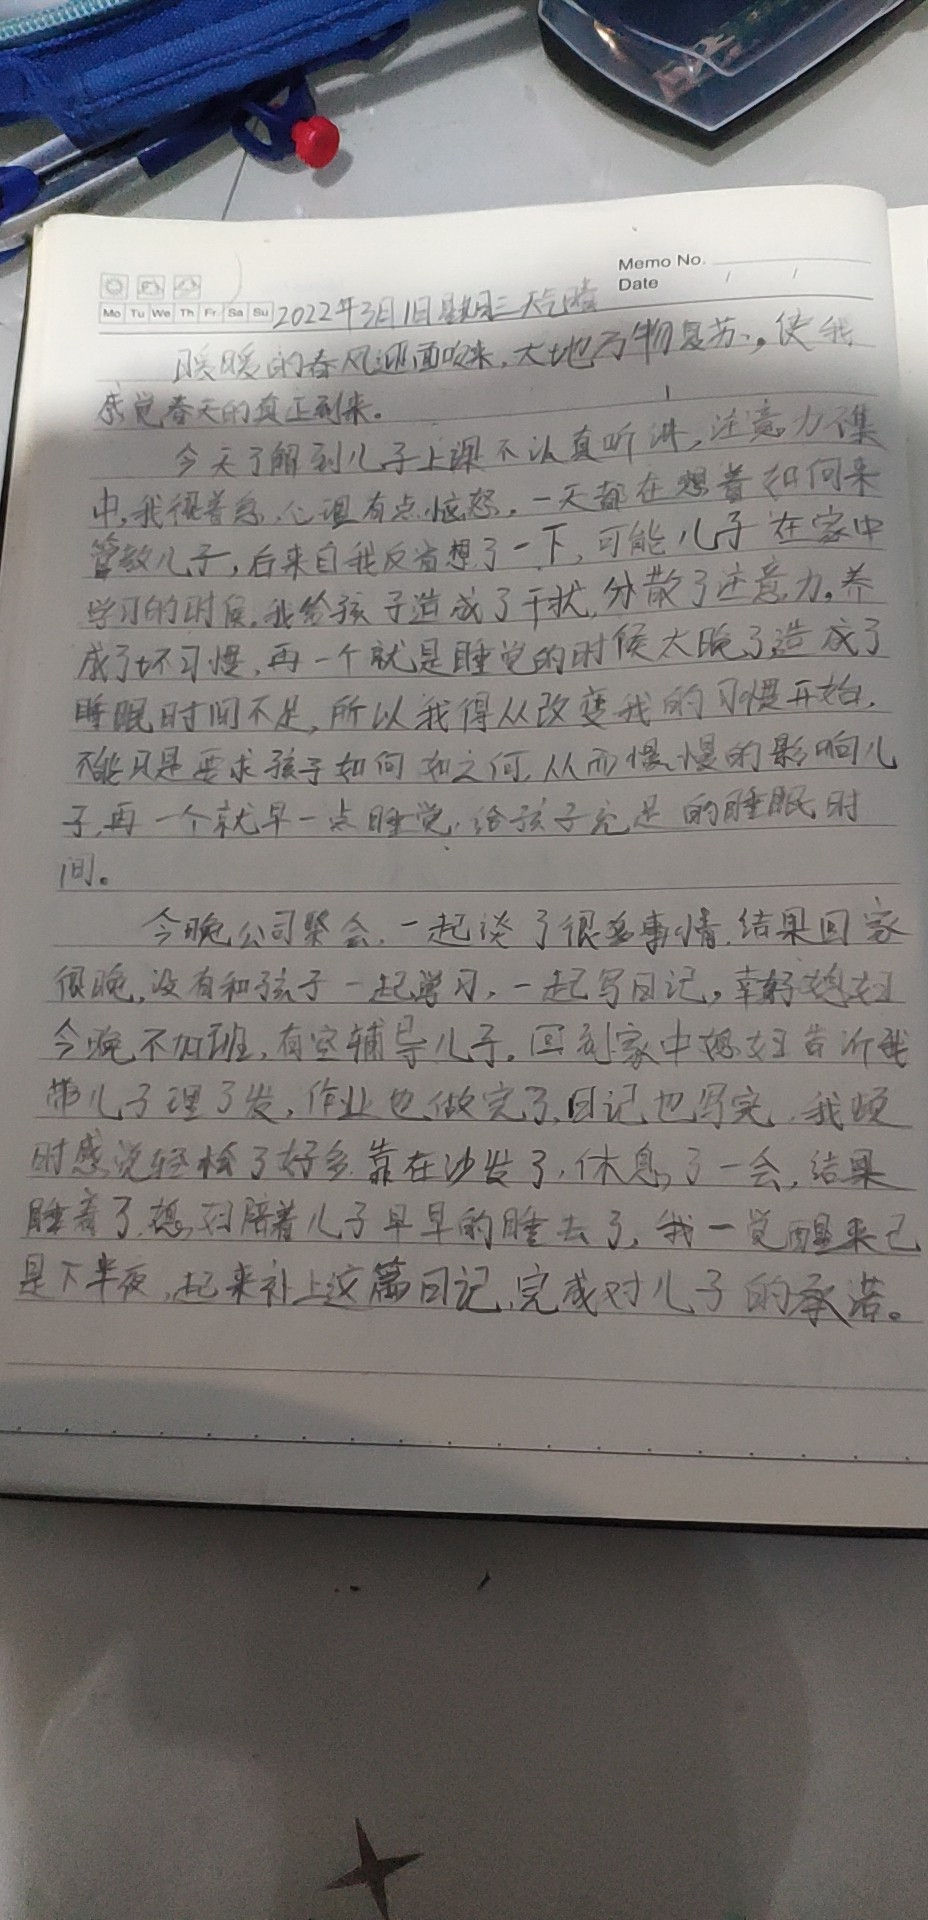 Memo No.
Date / /
Mo Tu We Th Fr Sa Su 2022年3月1日星期二天气晴
暖暖的春风迎面吹来,大地万物复苏,使我
感觉春天的真正到来。
今天了解到儿子上课不认真听讲,注意力不集
中,我很着急,心里有点恼怒,一天都在想着如何来
管教儿子,后来自我反省想了一下,可能儿子在家中
学习的时候,我给孩子造成了干扰,分散了注意力,养
成了坏习惯,再一个就是睡觉的时候太晚了,造成了
睡眠时间不足,所以我得从改变我的习惯开始,
不能只是要求孩子如何如之何,从而慢慢的影响儿
子,再一个就早一点睡觉,给孩子充足的睡眠时
间。
今晚公司聚会,一起谈了很多事情,结果回家
很晚,没有和孩子一起学习,一起写日记,幸好媳妇
今晚不加班,有空辅导儿子,回到家中媳妇告诉我
带儿子理了发,作业也做完了,日记也写完,我顿
时感觉轻松了好多,靠在沙发了,休息了一会,结果
睡着了,媳妇陪着儿子早早的睡去了,我一觉醒来已
是下半夜,起来补上这篇日记,完成对儿子的承诺。